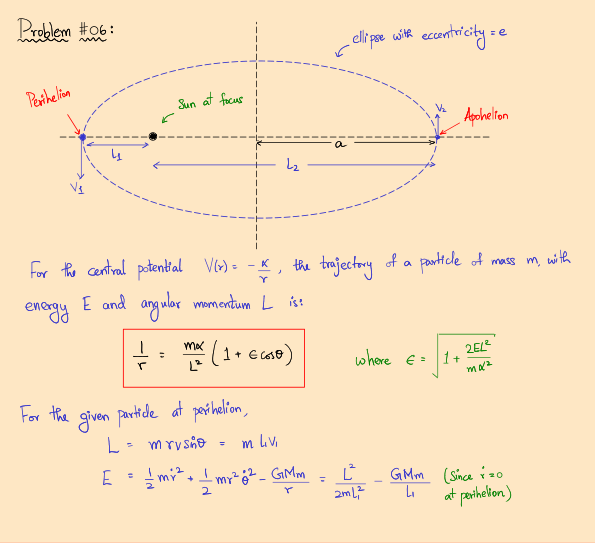 Problem #06:
ellipse with eccentricity = e
Perihelion
Sun at focus
V₂
Aphelion
L₁
a
L₂
V₁
For the central potential V(r) = - α/r , the trajectory of a particle of mass m, with
energy E and angular momentum L is:
1/r = mα/L² (1 + ϵ cosθ)
where ϵ = √(1 + 2EL²/mα²)
For the given particle at perihelion,
L = m r v sinθ = m L₁V₁
E = 1/2 mṙ² + 1/2 mr² θ̇² - GMm/r = L²/2mL₁² - GMm/L₁ (Since ṙ=0
at perihelion)